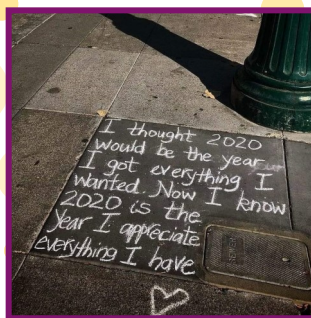 I thought 2020
would be the year
I got everything I
wanted. Now I know
2020 is the
year I appreciate
everything I have